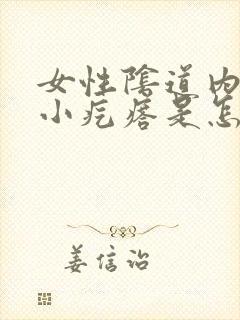 女性陰道内
小疙瘩是怎
姜信治